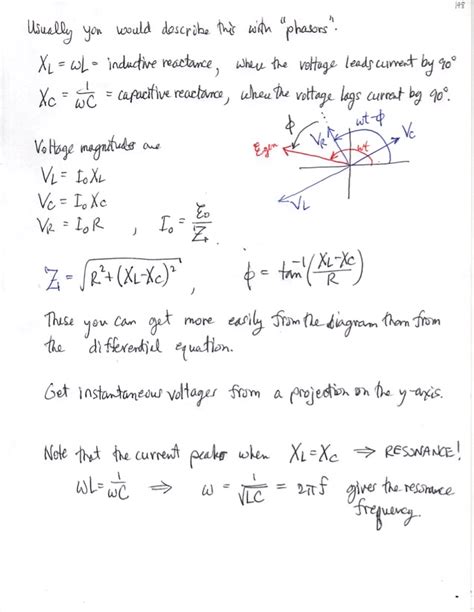 148
Usually you would describe this with "phasors".
X_L = ωL = inductive reactance, where the voltage leads current by 90°
X_C = 1/ωC = capacitive reactance, where the voltage lags current by 90°.
Voltage magnitudes are
V_L = I_0 X_L
V_C = I_0 X_C
V_R = I_0 R , I_0 = ℰ_0/Z
ϕ
V_R
ωt-ϕ
V_C
ℰ_gen
ωt
V_L
Z = √(R² + (X_L-X_C)²) , ϕ = tan⁻¹((X_L-X_C)/R)
These you can get more easily from the diagram than from
the differential equation.
Get instantaneous voltages from a projection on the y-axis.
Note that the current peaks when X_L = X_C ⇒ RESONANCE!
ωL = 1/ωC ⇒ ω = 1/√LC = 2πf gives the resonance
frequency.